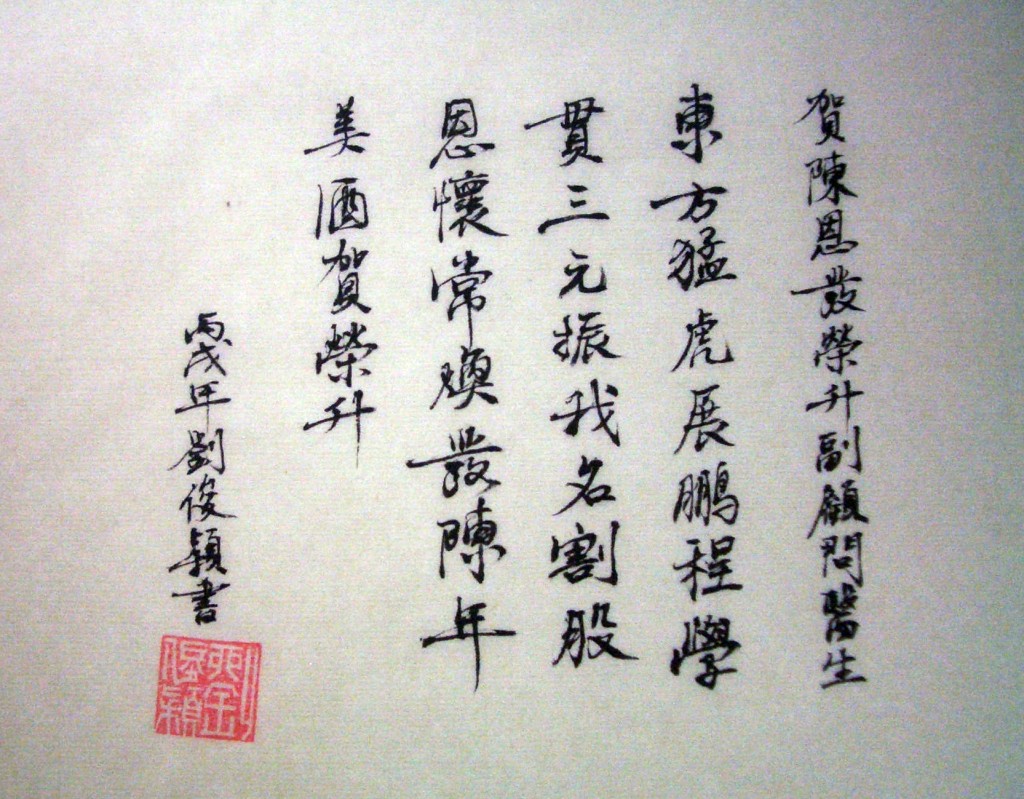 賀陳恩發榮升副顧問醫生
東方猛虎展鵬程學
貫三元振我名割股
恩懷常煥發陳年
美酒賀榮升
丙戌年劉俊穎書
劉俊穎